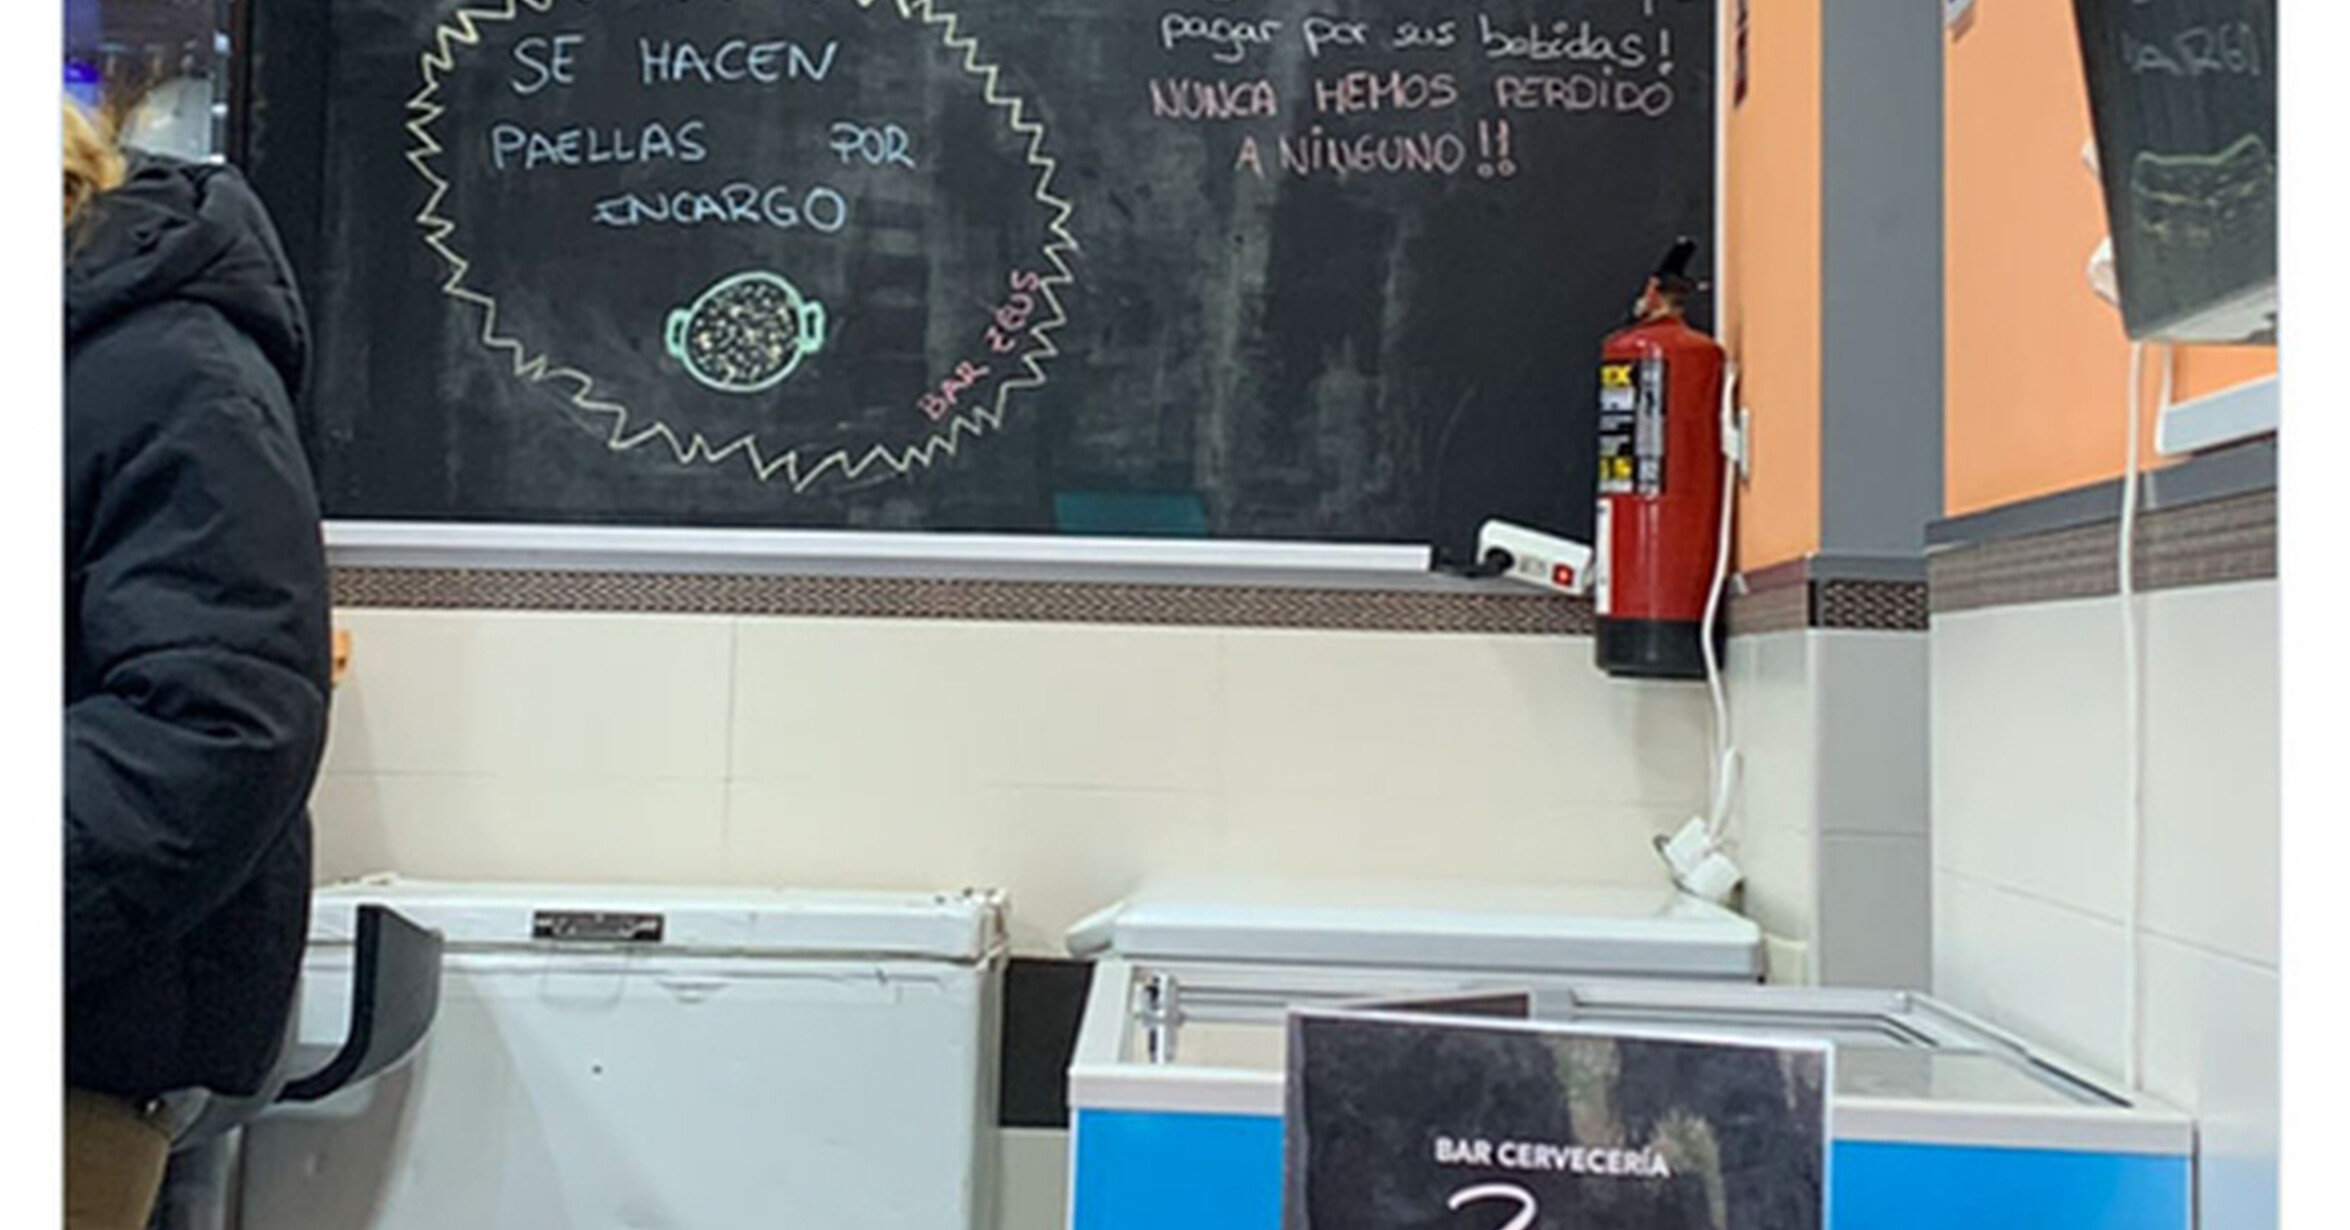 SE HACEN
PAELLAS POR
ENCARGO
BAR ZEUS
pagar por sus bebidas!
NUNCA HEMOS PERDIDO
A NINGUNO!!
ARGO
BAR CERVECERÍA